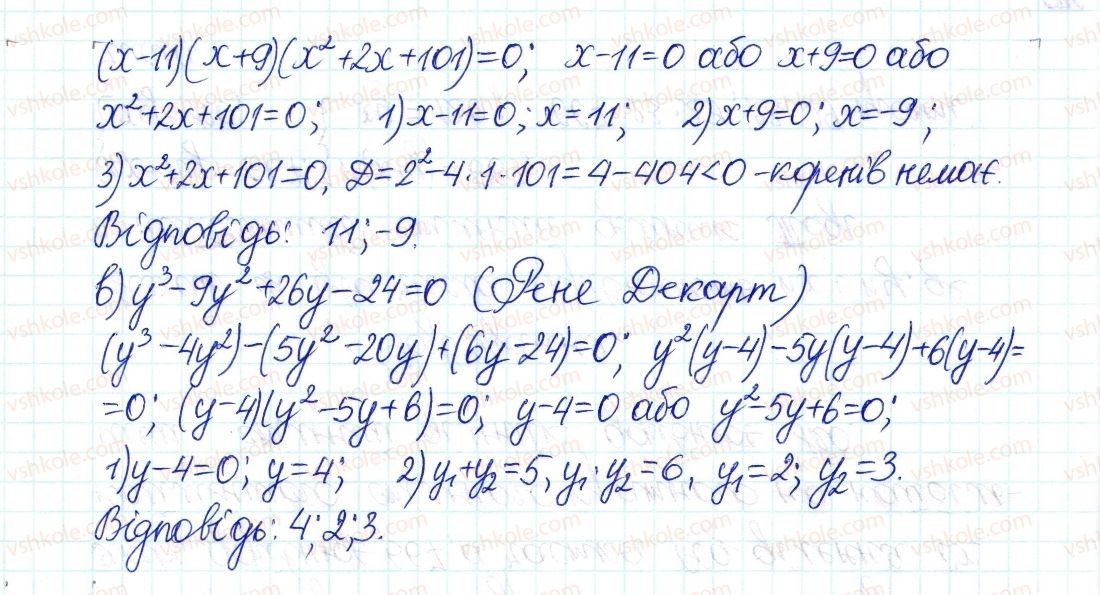 (x-11)(x+9)(x²+2x+101)=0; x-11=0 або x+9=0 або
x²+2x+101=0; 1) x-11=0; x=11; 2) x+9=0; x=-9;
3) x²+2x+101=0, Д=2²-4·1·101=4-404<0 - коренів немає.
Відповідь: 11; -9.
в) y³-9y²+26y-24=0 (Рене Декарт)
(y³-4y²)-(5y²-20y)+(6y-24)=0; y²(y-4)-5y(y-4)+6(y-4)=
=0; (y-4)(y²-5y+6)=0; y-4=0 або y²-5y+6=0;
1) y-4=0; y=4; 2) y₁+y₂=5, y₁·y₂=6, y₁=2; y₂=3.
Відповідь: 4; 2; 3.